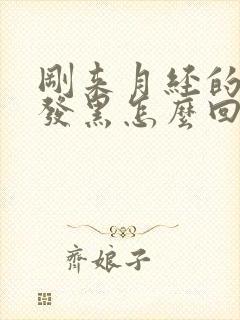 剛來月經的
發黑怎麼回
齊娘子